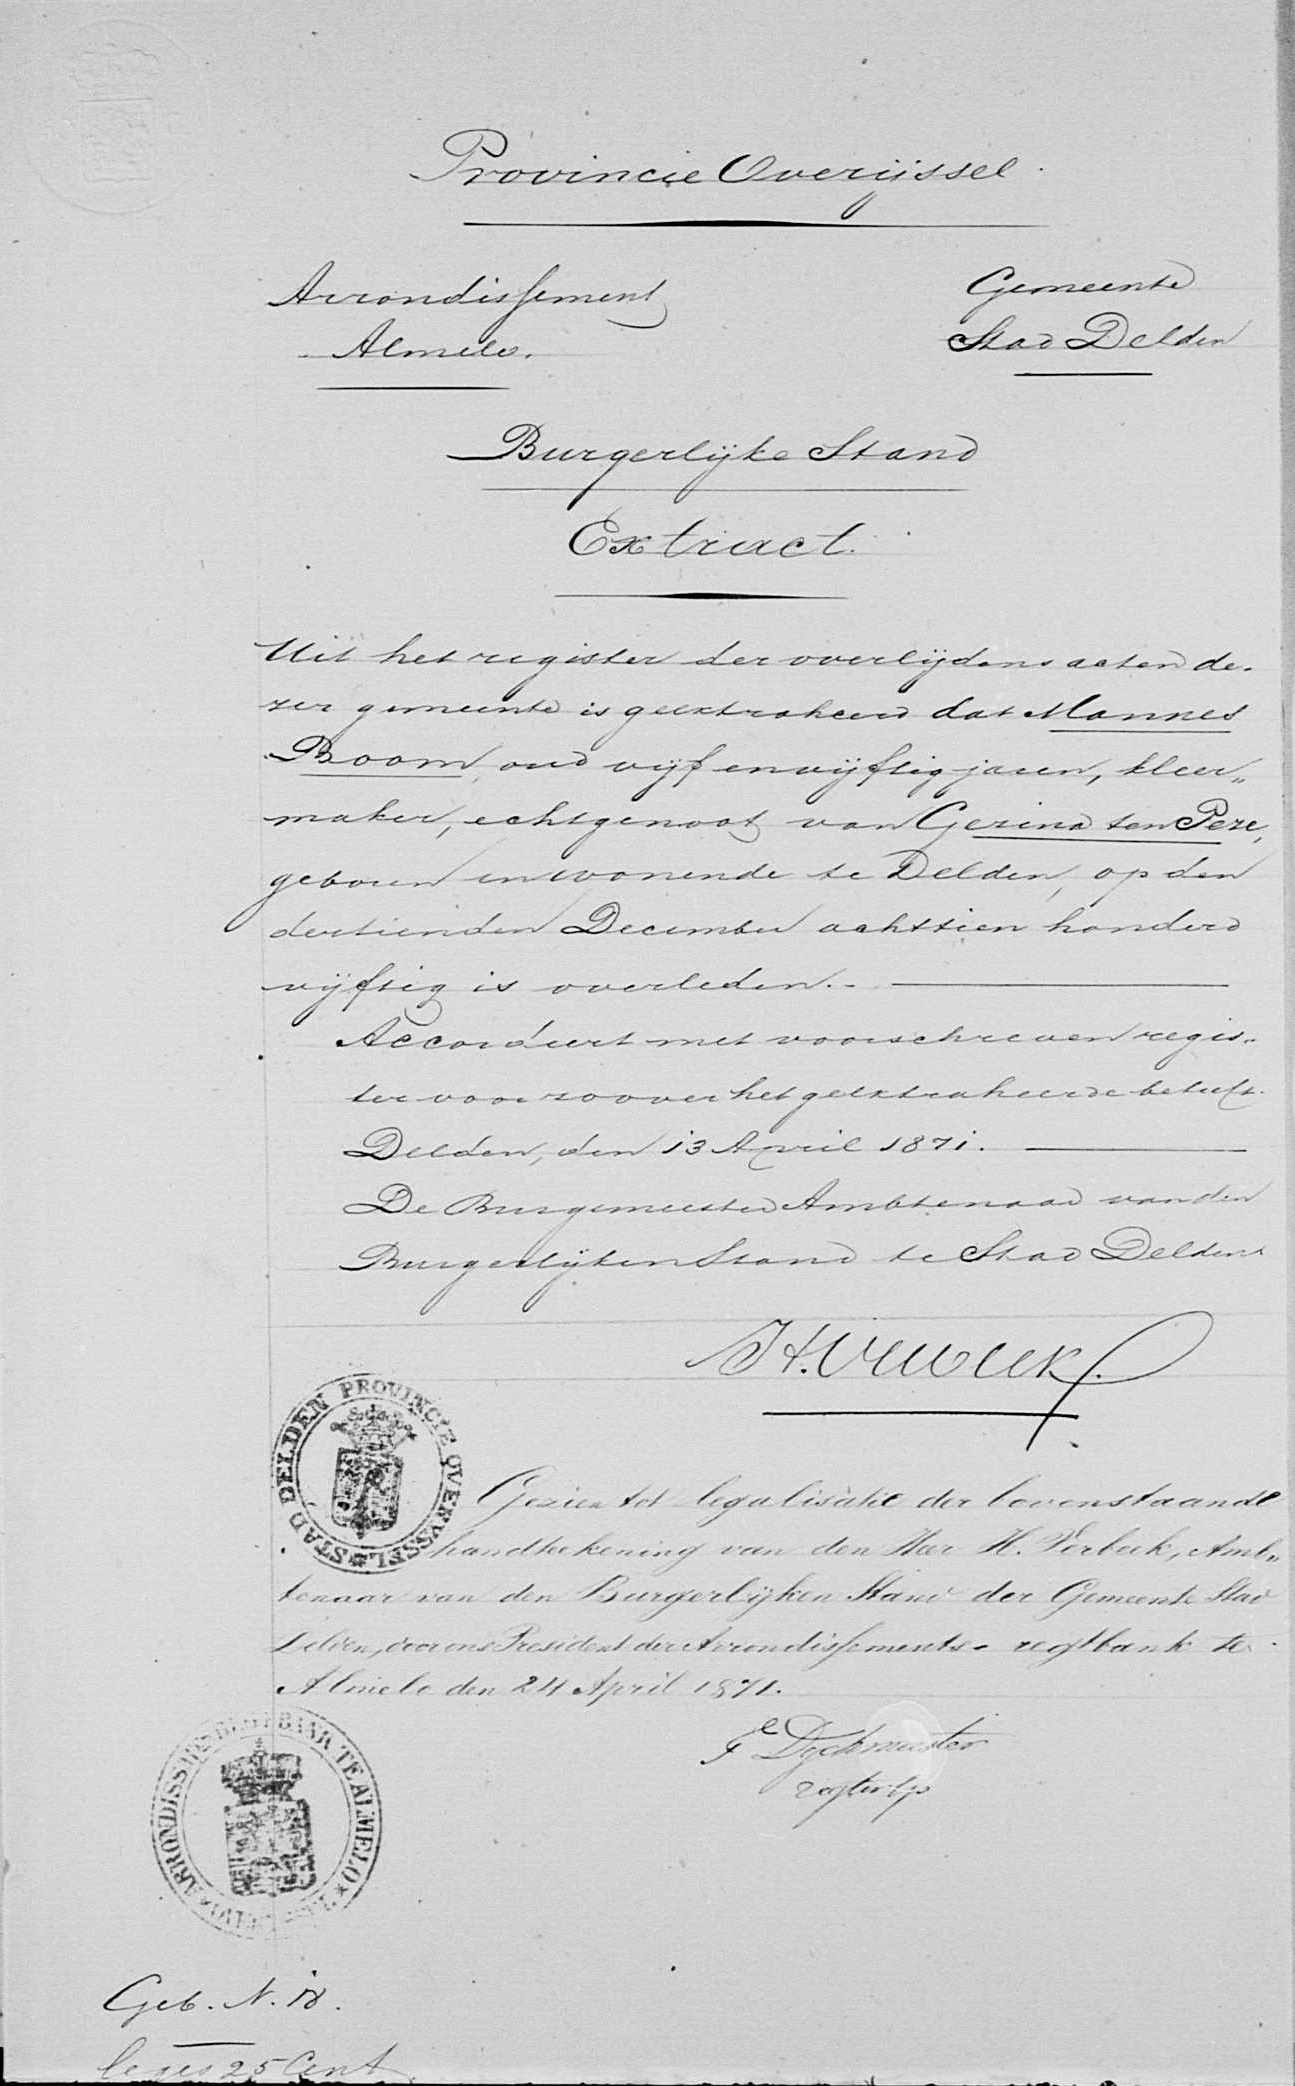 Provincie Overijssel.
Arrondissement
Almelo.
Gemeente
Stad Delden
Burgerlijke Stand
Extract.
Uit het register der overlijdens acten de-
zer gemeente is geextraheerd dat Mannes
Boom, oud vijf en vijftig jaren, kleer„
maker, echtgenoot van Gerina ten Pere,
geboren en wonende te Delden, op den
dertienden December achttien honderd
vijftig is overleden.
Accordeert met voorschreven regis„
ter voor zoover het geextraheerde betreft.
Delden, den 13 April 1871.
De Burgemeester Ambtenaar van den
Burgerlijken Stand te Stad Delden
H. Verbeek.
STAD DELDEN PROVINCIE OVERYSSEL
Gezien tot legalisatie der bovenstaande
handteekening van den Heer H. Verbeek, Amb„
tenaar van den Burgerlijken Stand der Gemeente Stad
Delden, door ons President der Arrondissements-regtbank te
Almelo den 24 April 1871.
Dyckmeester
ARRONDISSEMENTS REGTBANK TE ALMELO
Geb. N. 18.
leges 25 Cent.